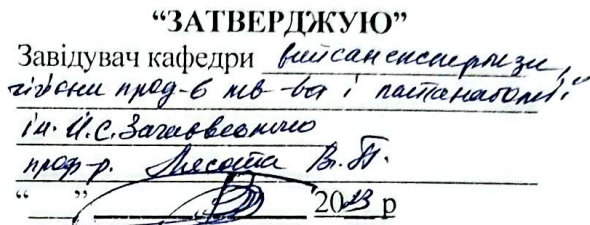 “ЗАТВЕРДЖУЮ”
Завідувач кафедри ветсанекспертизи,
гігієни прод-в тв-ва і патанатомії
ім. Й.С. Загаєвського
проф-р. Лясота В. П.
“ ” 2023 р